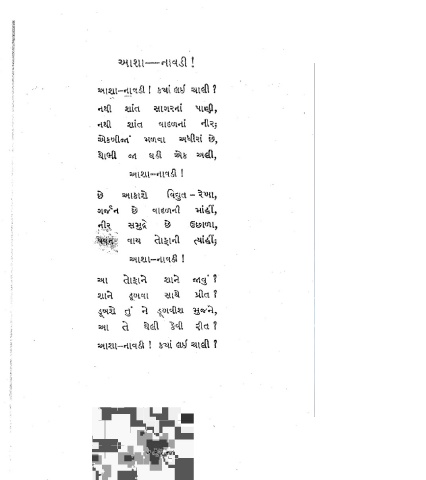 આશા—નાવડી !
આશા–નાવડી ! ક્યાં લઈ ચાલી ?
નથી શાંત સાગરનાં પાણી,
નથી શાંત વાદળનાં નીર;
એકબીજાં મળવા અધીરાં છે,
થોભી જા ઘડી એક અલી,
આશા–નાવડી !
છે આકાશે વિદ્યુત – રેખા,
ગર્જન છે વાદળની માંહીં,
નીર સમુદ્રે છે ઉછાળા,
પવન વાય તોફાની ત્યાંહીં;
આશા–નાવડી !
આ તોફાને શાને જાવું ?
શાને ડૂબવા સાથે પ્રીત ?
ડૂબશે તું ને ડૂબાવીશ મુજને,
આ તે ઘેલી કેવી રીત ?
આશા–નાવડી ! ક્યાં લઈ ચાલી ?